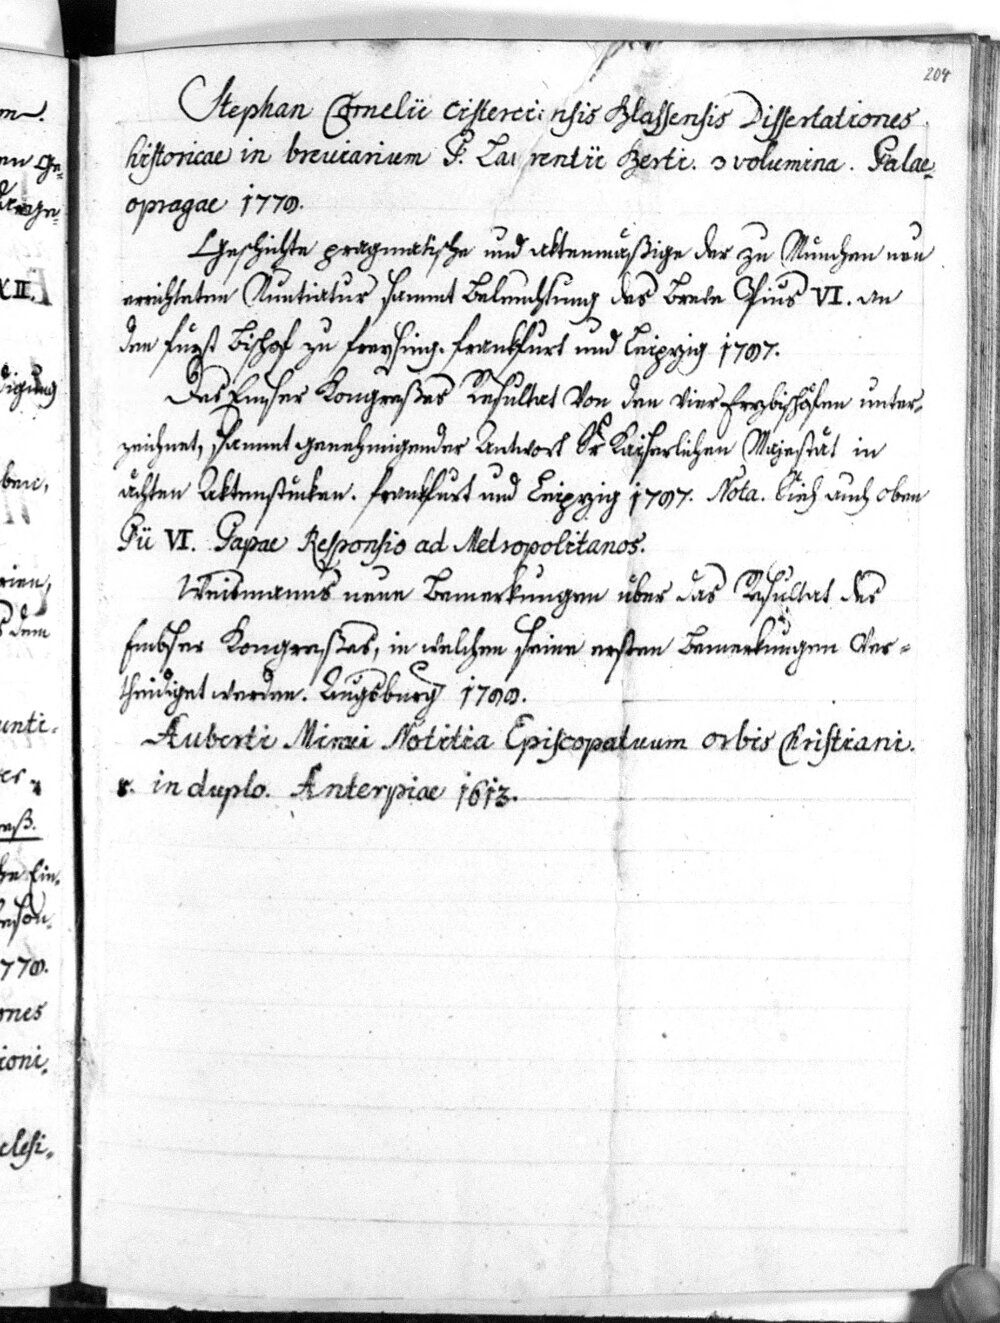 204
Stephan Cornelii Cisterciensis Plassensis Dissertationes
historicae in breviarium P. Laurentii Berti. 3 volumina. Palae-
opragae 1778.
Geschichte pragmatische und aktenmäßige der zu München neu
errichteten Nuntiatur sammt Beleuchtung des Breve Pius VI. an
den Fürst Bischof zu Freysing. Frankfurt und Leipzig 1787.
Des Emser Kongreßes Resultat von den vier Erzbischöfen unter-
zeichnet, sammt genehmigender Antwort Sr Kaiserlichen Majestät in
ächten Aktenstücken. Frankfurt und Leipzig 1787. Nota. Sieh auch oben
Pii VI. Papae Responsio ad Metropolitanos.
Weidmanns neue Bemerkungen über das Resultat des
Embser Kongreßes, in welchen seine ersten Bemerkungen ver-
theidiget werden. Augsburg 1788.
Auberti Miraei Notitia Episcopatuum orbis Christiani.
8. in duplo. Anterpiae 1613.